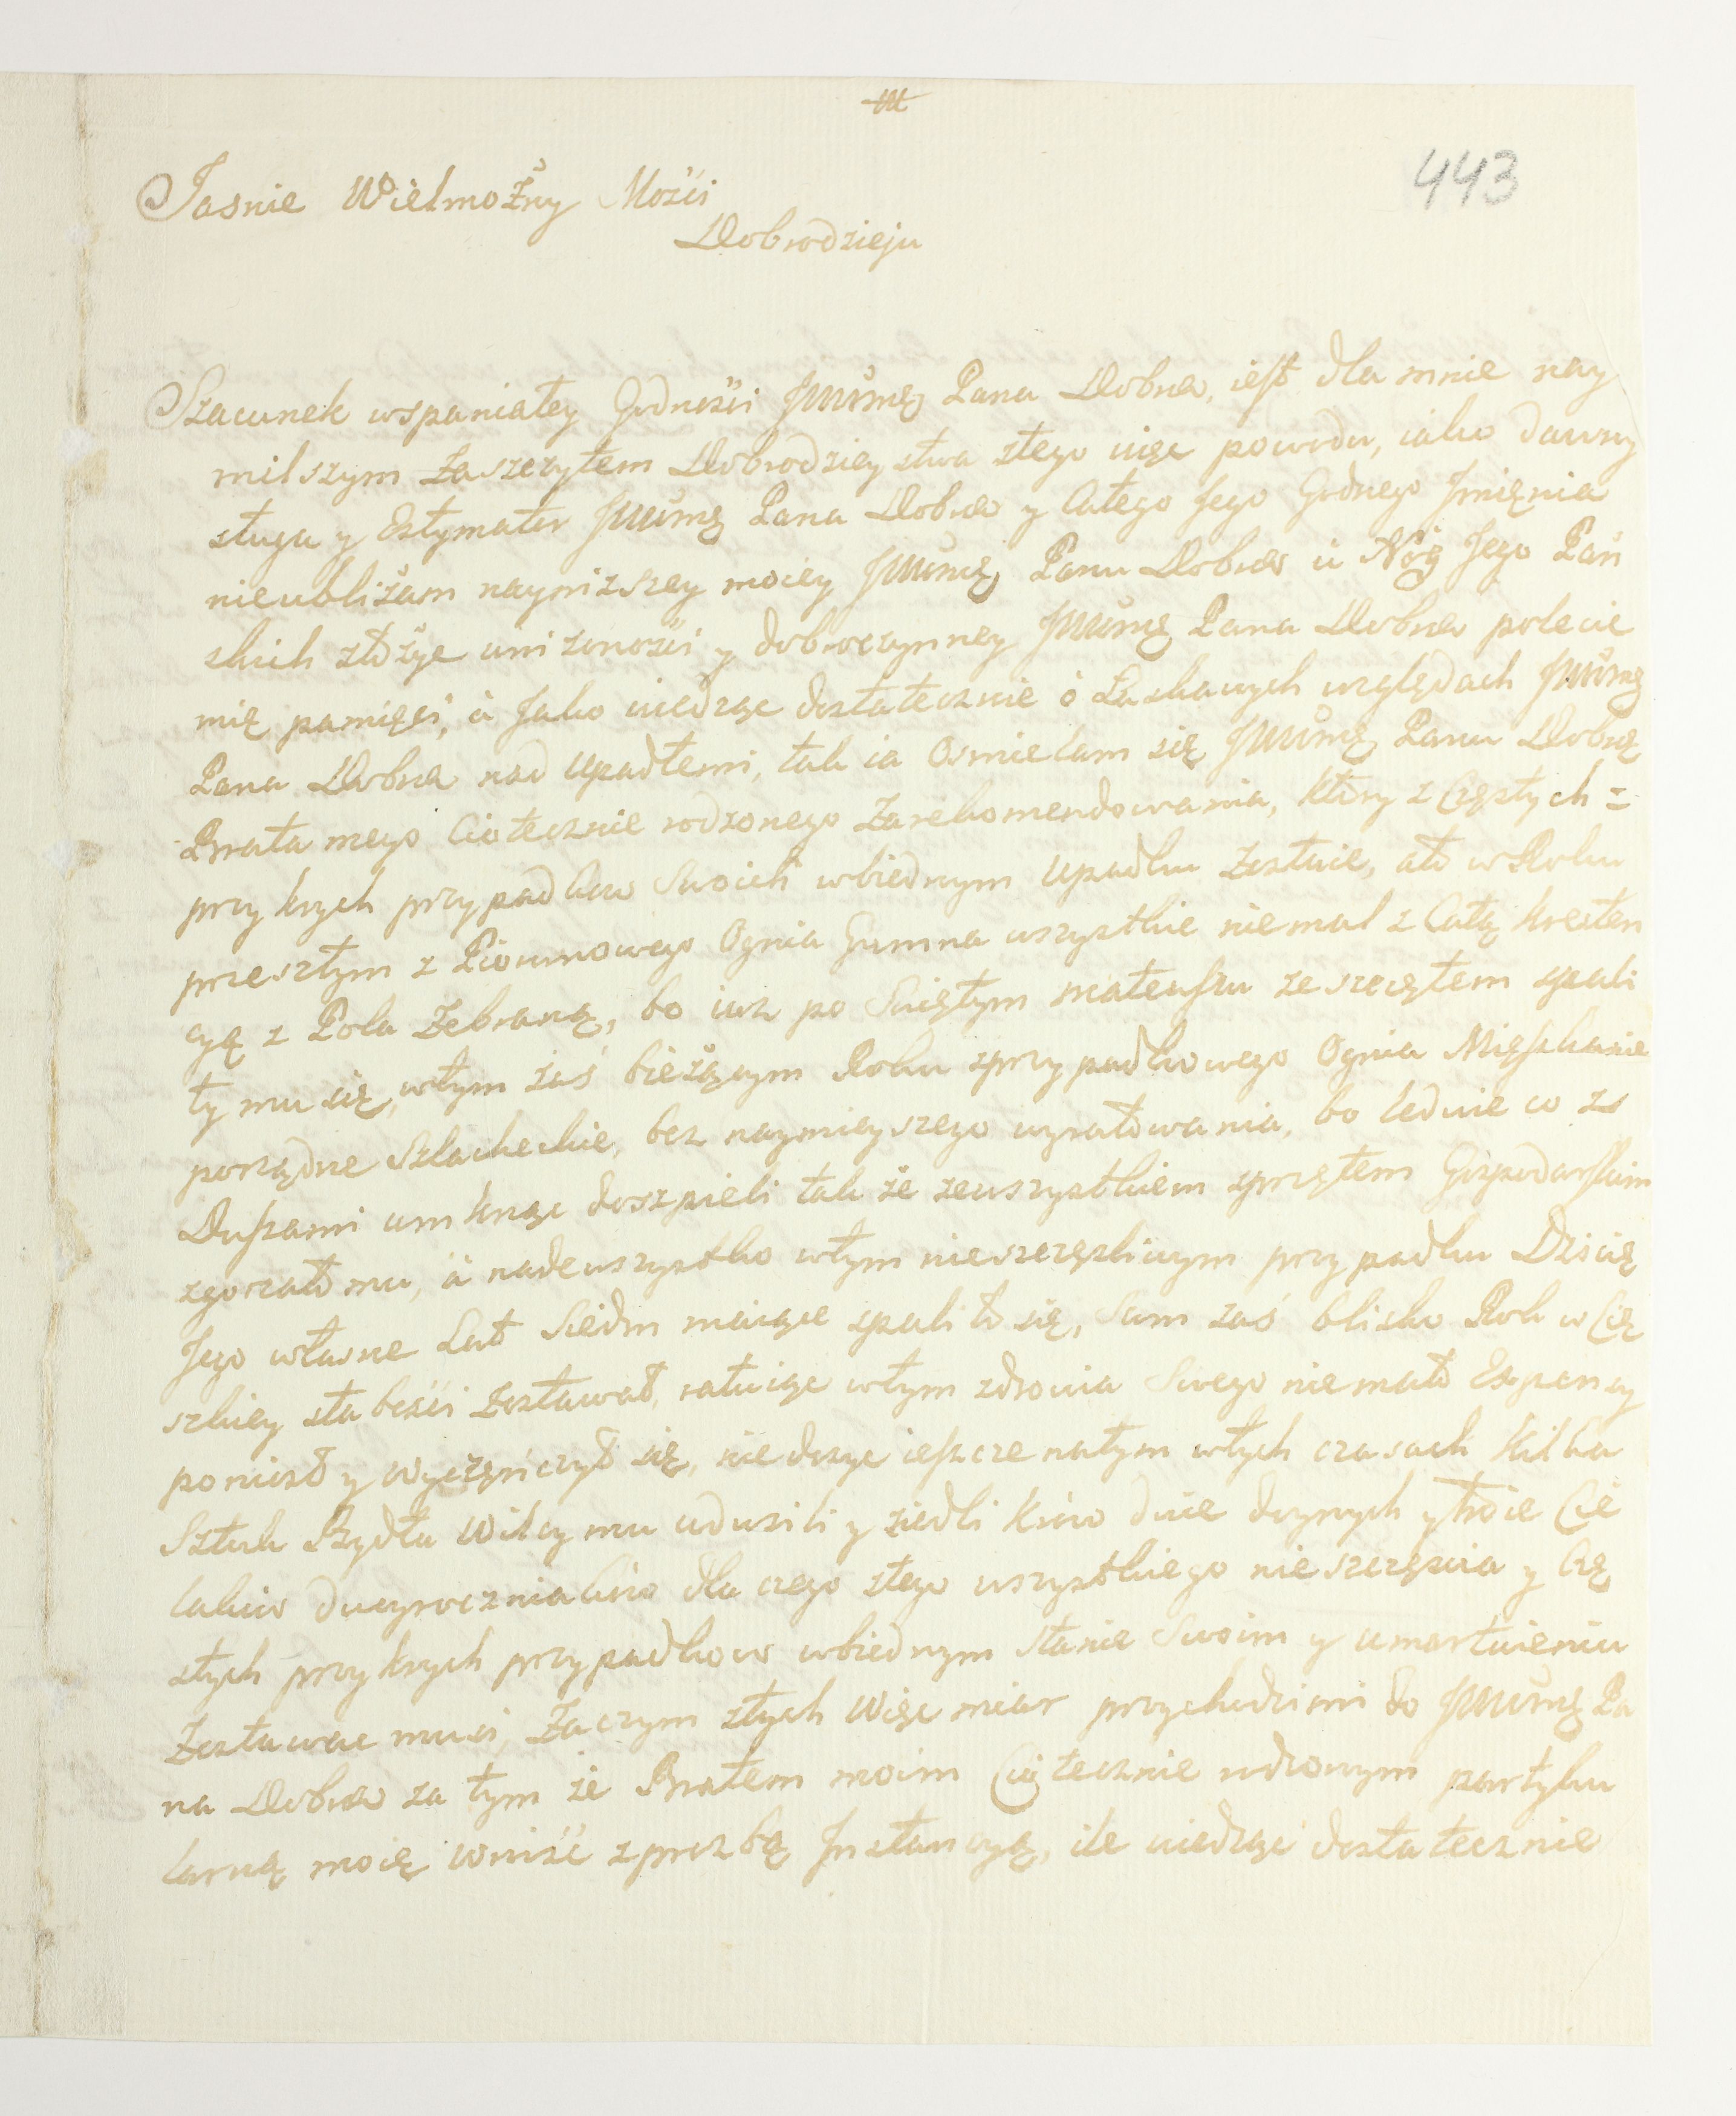 443
Jasnie Wielmożny Mości
Dobrodzieju
Szacunek wspaniałey Godności JWWmg Pana Dobra, iest dla mnie nay
milszym Zaszczytem Dobrodzieystwa ztego więc powodu, iako dawny
sługa y Estymator JWWmg Pana Dobra y Całego Jego Godnego Imięnia
nieubliżam naynizszey moiey JWWmg Panu Dobra ù Nóg Jego Pań
skich złożyc unizoności y dobroczynney JWWmg Pana Dobra polecie
mię pamięci, à Jako wiedząc dostatecznie ó Łaskawych względach JWWmg
Pana Dobra nad Upadłemi, tak ia Osmielam się JWWmg Panu Dobrą
Brata mego Ciotecznie rodzonego Zarekomendowania, ktory z Częstych =
przykrych przypadkow Swoich wbiednym Upadku Zostaie, ato w Roku
przeszłym z Piorunowego Ognia Gumna wszystkie niemal z Całą kresten
cyą z Pola Zebraną, bo iuz po Swiętym mateuszu ze szczętem spali
ły mu się, wtym zaś bieżącym Roku zprzypadkowego Ognia Mięszkanie
porządne Szlacheckie, bez naymieyszego wyratowania, bo ledwie co zs
Duszami umknąc doszpieli tak że zewszystkiem zprzętem Gospodarskim
zgorzało mu, à nadewszystko wtym nieszczęsliwym przypadku Dzicię
Jego własne Lat Siedm maiące spaliło się, Sam zaś blisko Rok w Cię
szkiey słabości Zostawał, ratuiąc wtym zdrowia Swego niemało Expensy
poniosł y wyczęńczył się, niedosyc ieszcze natym wtych czasach kilka
Sztuk Bydła Wilcy mu udusili y ziedli krów dwie doynych y troie Cie
lakow dwuyroczniakow dla czego ztego wszystkiego nieszczęscia y Czę
stych przykrych przypadkow wbiednym Stanie Swoim y umartwieniu
Zostawac musi, Zaczym ztych Więc miar przychodzi mi do JWWmg Pa
na Dobra za tym że Bratem moim Ciotecznie rodzonym partyku
larną moię wniść z prozbą Instancyą, ile wiedząc dostatecznie